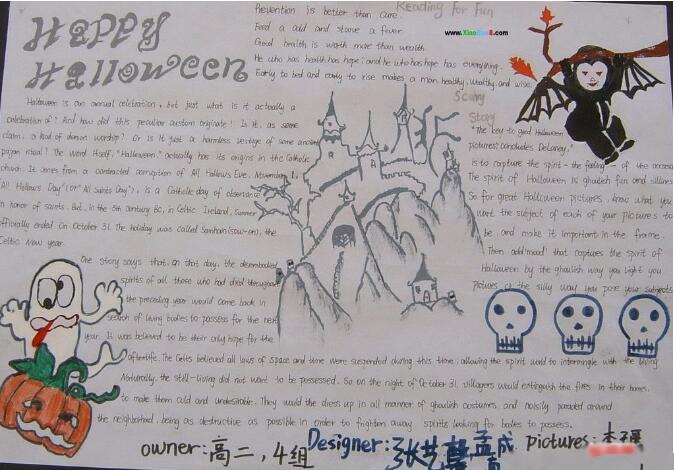 Happy
Halloween
Prevention is better than cure.
Feed a cold and starve a fever
Good health is worth more than wealth
He who has health has hope; and he who has hope has everything.
Early to bed and early to rise makes a man healthy, wealthy and wise
Reading for Fun
Scary
Story
Halloween is an annual celebration, but just what is it actually a
celebration of? And how did this peculiar custom originate? Is it, as some
claim, a kind of demon worship? Or is it just a harmless vestige of some ancient
pagan ritual? The word itself, "Halloween," actually has its origins in the Catholic
church. It comes from a contracted corruption of All Hallows Eve. November 1,
"All Hallows Day" (or "All Saints Day"), is a Catholic day of observance
in honor of saints. But, in the 5th century BC, in Celtic Ireland, summer
officially ended on October 31. The holiday was called Samhain (sow-en), the
Celtic New year.
One story says that, on that day, the disembodied
spirits of all those who had died throughout
the preceding year would come back in
search of living bodies to possess for the next
year. It was believed to be their only hope for the
afterlife. The Celts believed all laws of space and time were suspended during this time, allowing the spirit world to intermingle with the living
Naturally, the still-living did not want to be possessed. So on the night of October 31, villagers would extinguish the fires in their homes,
to make them cold and undesirable. They would the dress up in all manner of ghoulish costumes, and noisily paraded around
the neighborhood, being as destructive as possible in order to frighten away spirits looking for bodies to possess.
"The key to good Halloween
pictures," concludes Delaney,
is to capture the spirit - the feeling - of the occasion
The spirit of Halloween is ghoulish fun and silliness
So for great Halloween pictures, know what you
want the subject of each of your pictures to
be, and make it important in the frame.
Then add "mood" that captures the spirit of
Halloween by the ghoulish way you light you
pictures or the silly way you pose your subjects
owner: 高二,4组
Designer: 张
孟成
pictures: 李